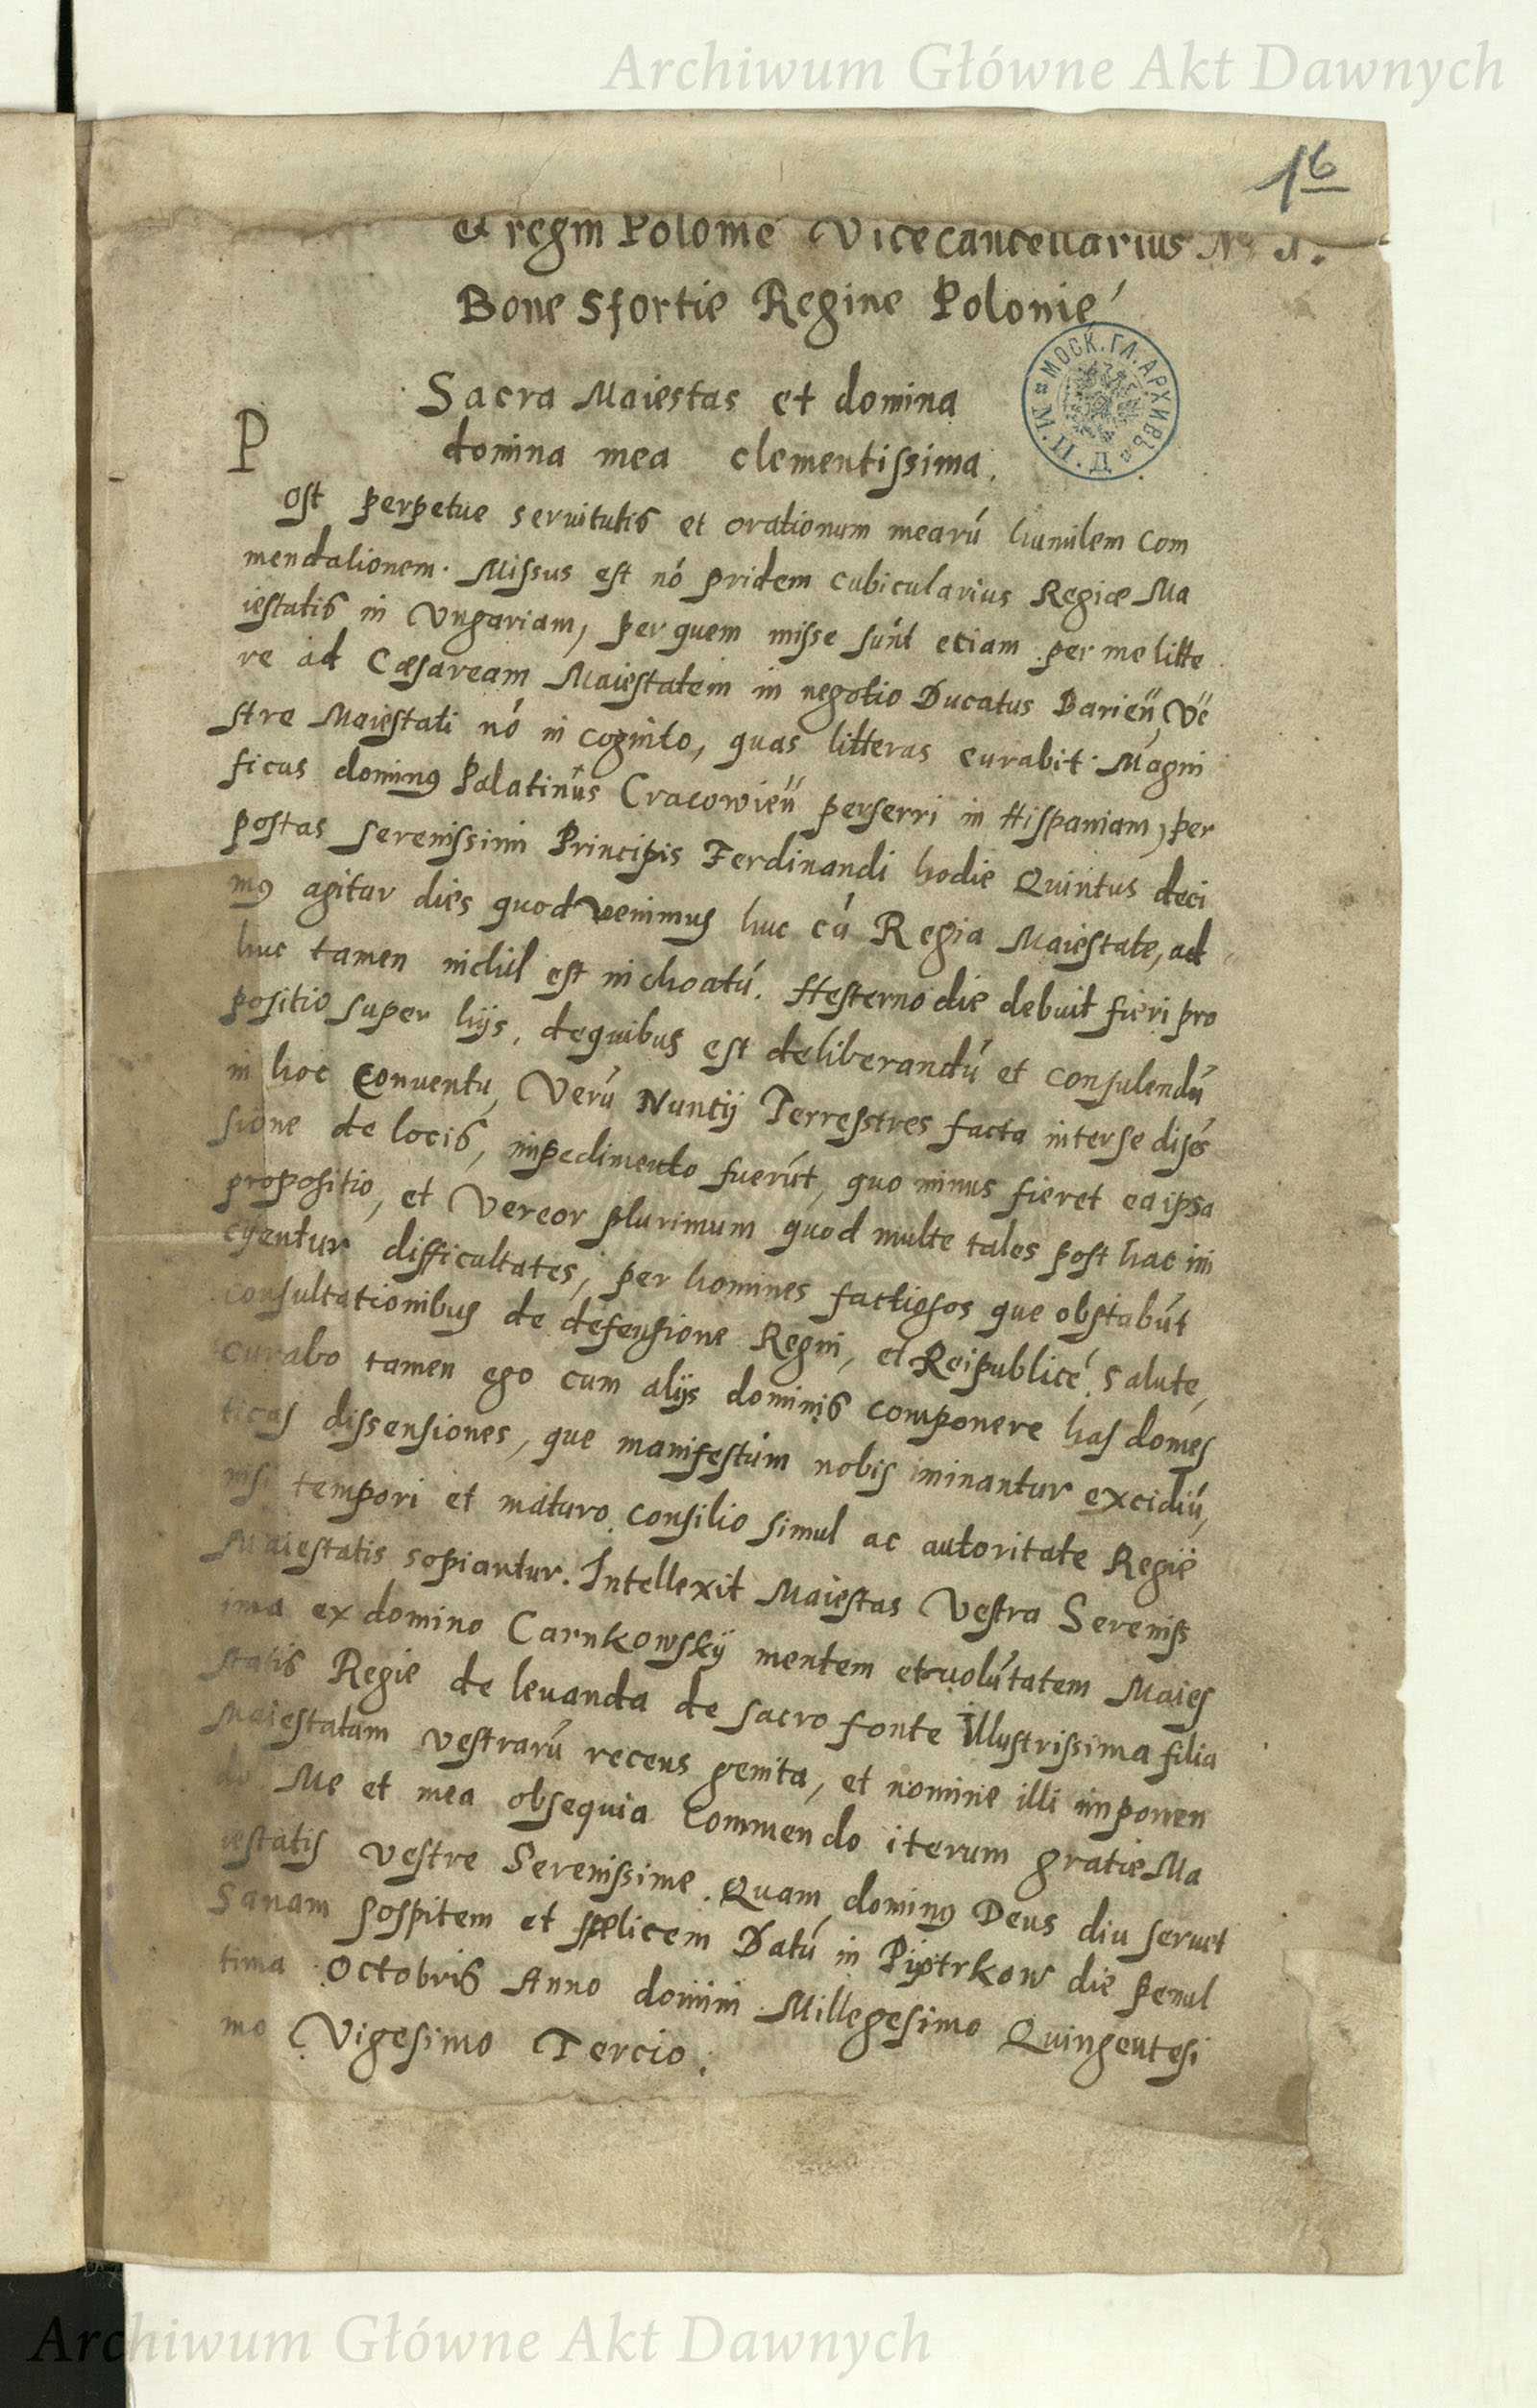 Archiwum Główne Akt Dawnych
16
et regni Polonie Vicecancellarius No 1.
Bone Sfortie Regine Polonie
МОСК. ГЛ. АРХИВЪ М. И. Д.
Sacra Maiestas et domina
domina mea clementissima.
P
ost perpetue seruitutis et orationum mearū humilem Com
mendationem. Missus est nō pridem cubicularius Regiæ Ma
iestatis in Vngariam, per quem misse sunt etiam per me litte
re ad Cæsaream Maiestatem in negotio Ducatus Barieñ, Ve
stre Maiestati nō in cognito, quas litteras curabit Magni
ficus dominꝰ Palatinus Cracowieñ perferri in Hispaniam, per
postas serenissimi Principis Ferdinandi hodie Quintus deci
mꝰ agitur dies quod venimus huc cū Regia Maiestate, ad
huc tamen nichil est inchoatū. Hesterno die debuit fieri pro
positio super hijs, dequibus est deliberandū et consulendū
in hoc Conuentu, Verū Nuntij Terrestres facta interse disēs
sione de locis, impedimento fuerūt, quo minus fieret ea ipsa
propositio, et Vereor plurimum quod multe tales post hac ini
cientur difficultates, per homines factiosos que obstabūt
consultationibus de defensione Regni, et Reipublice salute,
curabo tamen ego cum alijs dominis componere has domes
ticas dissensiones, que manifestum nobis minantur excidiū,
nisi tempori et maturo consilio simul ac autoritate Regie
Maiestatis sopiantur. Intellexit Maiestas Vestra Sereniss
ima ex domino Carnkowskÿ mentem et volūtatem Maies
statis Regie de leuanda de sacro fonte Illustrissima filia
Maiestatum vestrarū recens genita, et nomine illi imponen
do Me et mea obsequia Commendo iterum gratie Ma
iestatis vestre Serenissime. Quam dominꝰ Deus diu seruet
Sanam sospitem et fælicem Datū in Piotrkow die penul
tima Octobris Anno domini Millegesimo Quingentesi
mo Vigesimo Tercio.
Archiwum Główne Akt Dawnych